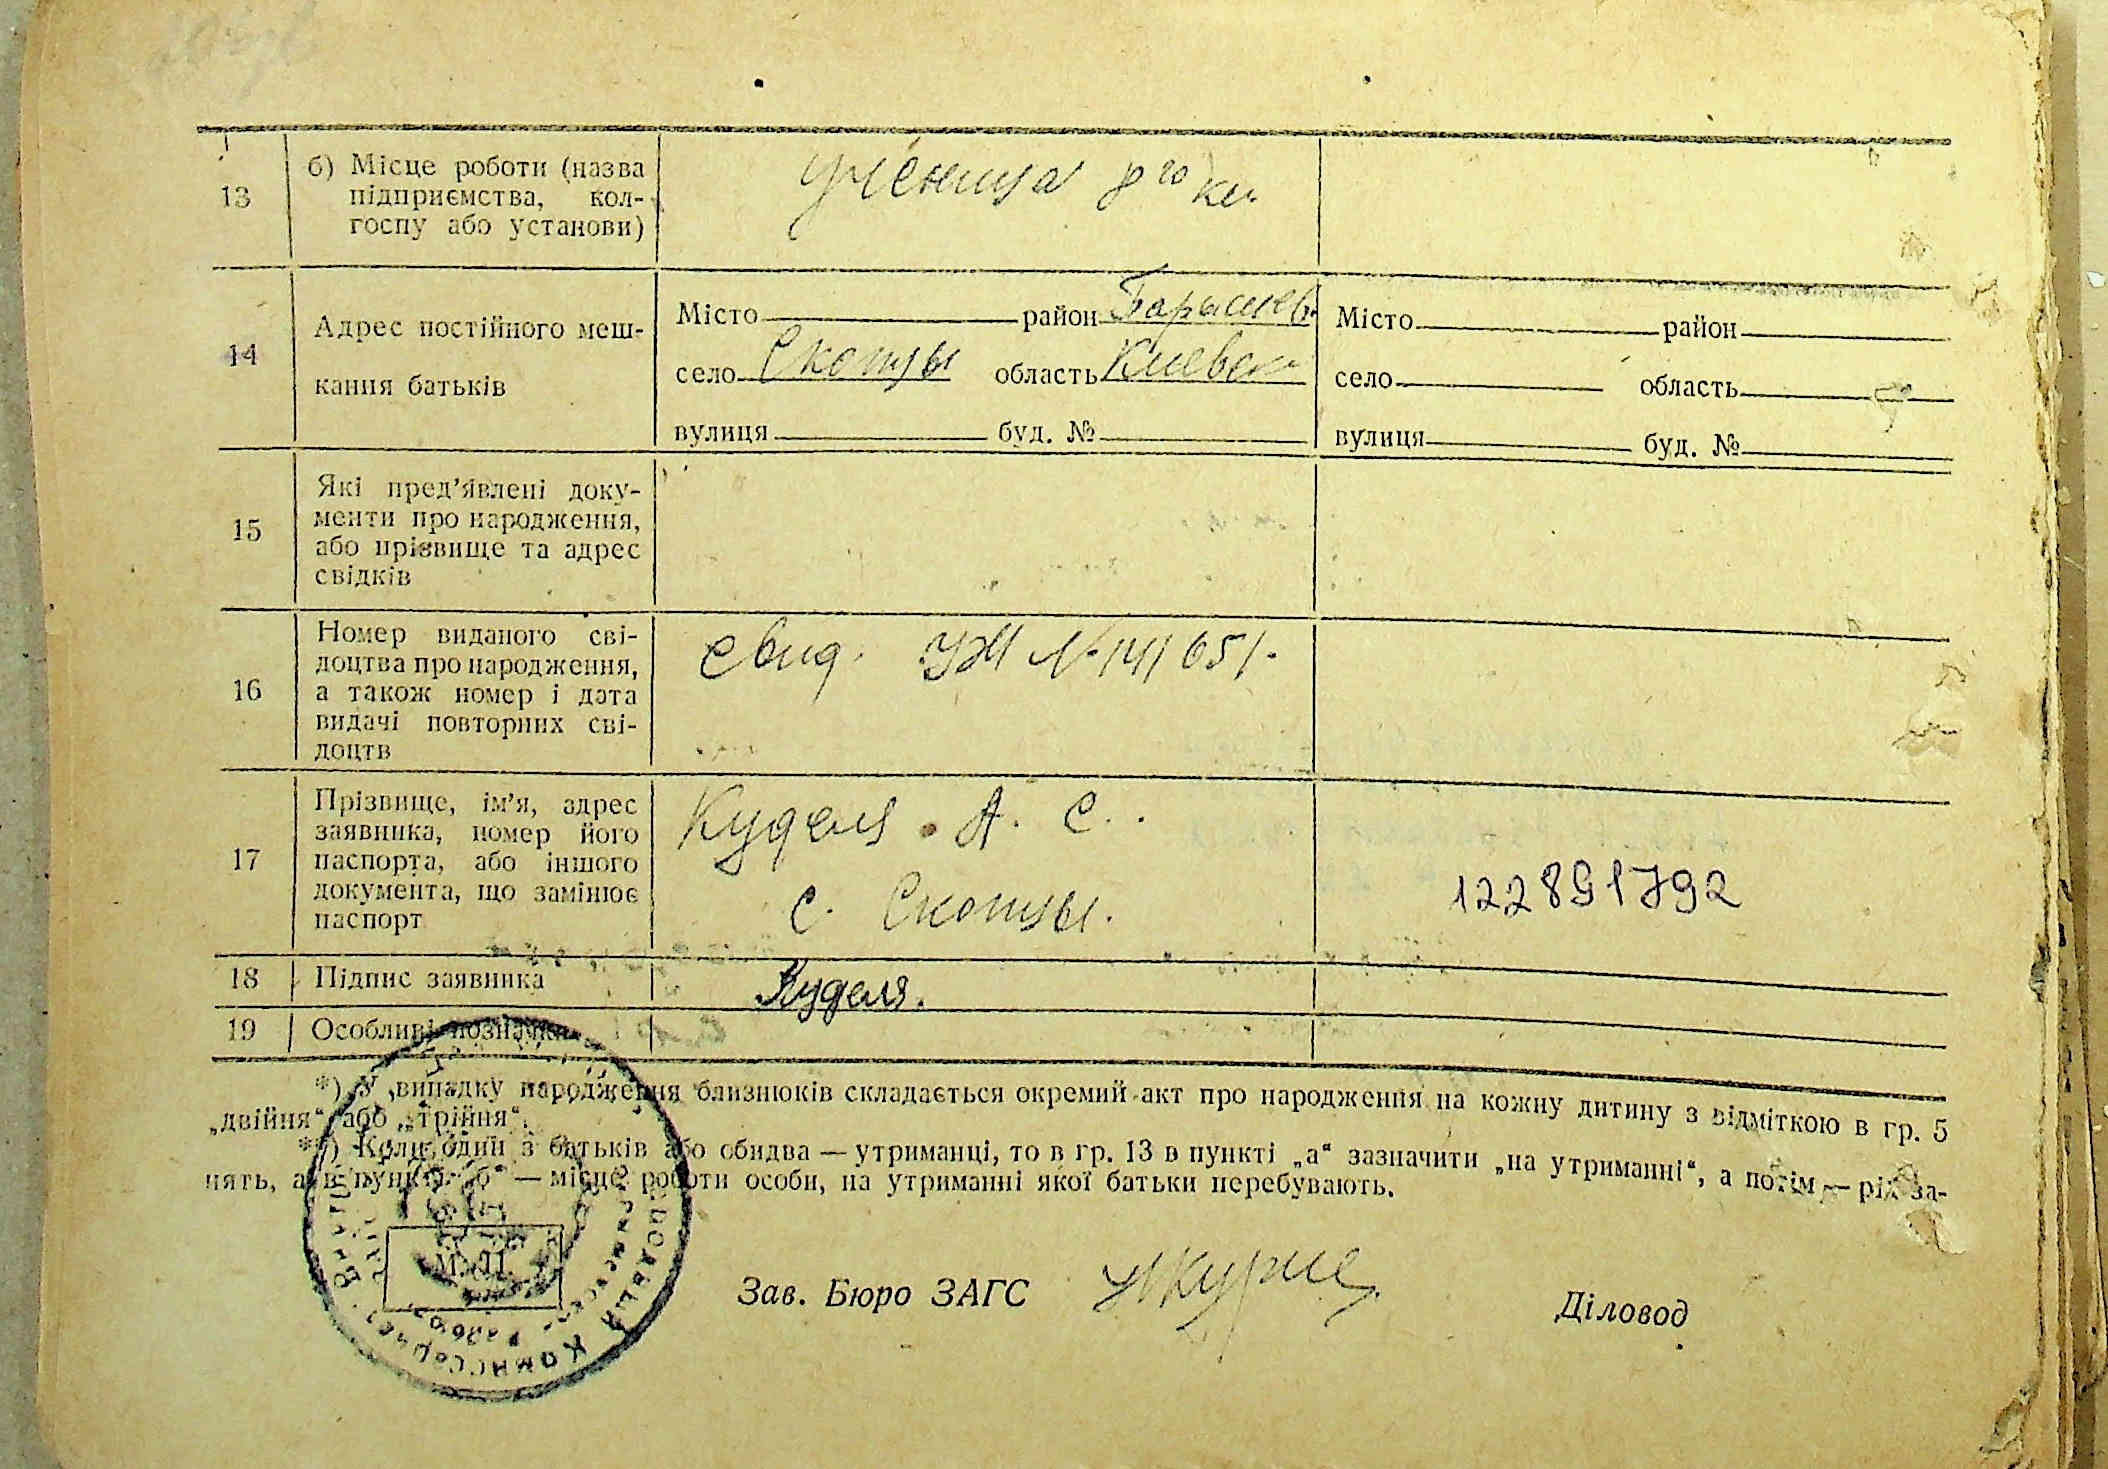 13
б) Місце роботи (назва
підприємства, кол-
госпу або установи)
ученица 8го кл.
14
Адрес постійного меш-
кання батьків
Місто район Барышев.
село Скопцы область Киевск
вулиця буд. №
Місто район
село область
вулиця буд. №
15
Які пред’явлені доку-
менти про народження,
або прізвище та адрес
свідків
16
Номер виданого сві-
доцтва про народження,
а також номер і дата
видачі повторних сві-
доцтв
свид. УЖ № 141651.
17
Прізвище, ім’я, адрес
заявника, номер його
паспорта, або іншого
документа, що замінює
паспорт
Куделя А. С.
с. Скопцы.
122891792
18
Підпис заявника
Куделя.
19
Особливі позначки
*) У випадку народження близнюків складається окремий акт про народження на кожну дитину з відміткою в гр. 5
„двійня“ або „трійня“.
**) Коли один з батьків або обидва — утриманці, то в гр. 13 в пункті „а“ зазначити „на утриманні“, а потім — рід за-
нять, а в пункті „б“ — місце роботи особи, на утриманні якої батьки перебувають.
М. П.
Зав. Бюро ЗАГС
Діловод